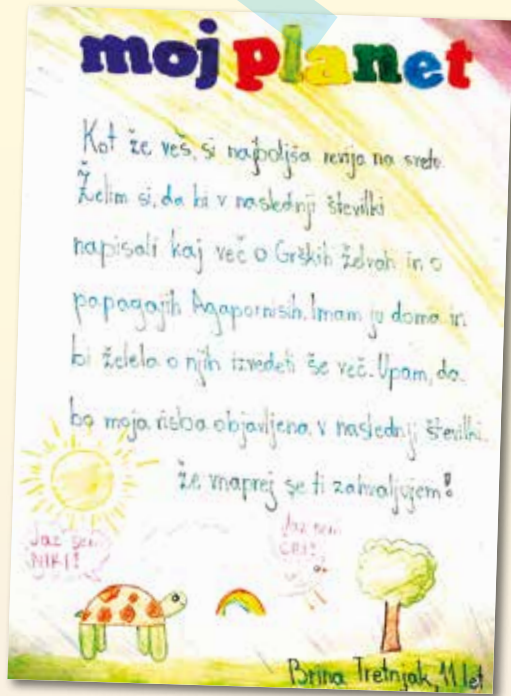 moj planet
Kot že veš, si najboljša revija na svetu.
Želim si, da bi v naslednji številki
napisali kaj več o Grških želvah in o
papagajih Agapornisih. Imam ju doma in
bi želela o njih izvedeti še več. Upam, da
bo moja risba objavljena v naslednji številki.
Že vnaprej se ti zahvaljujem!
Jaz sem
NIKI!
Jaz sem
ČRI!
Brina Tretnjak, 11 let